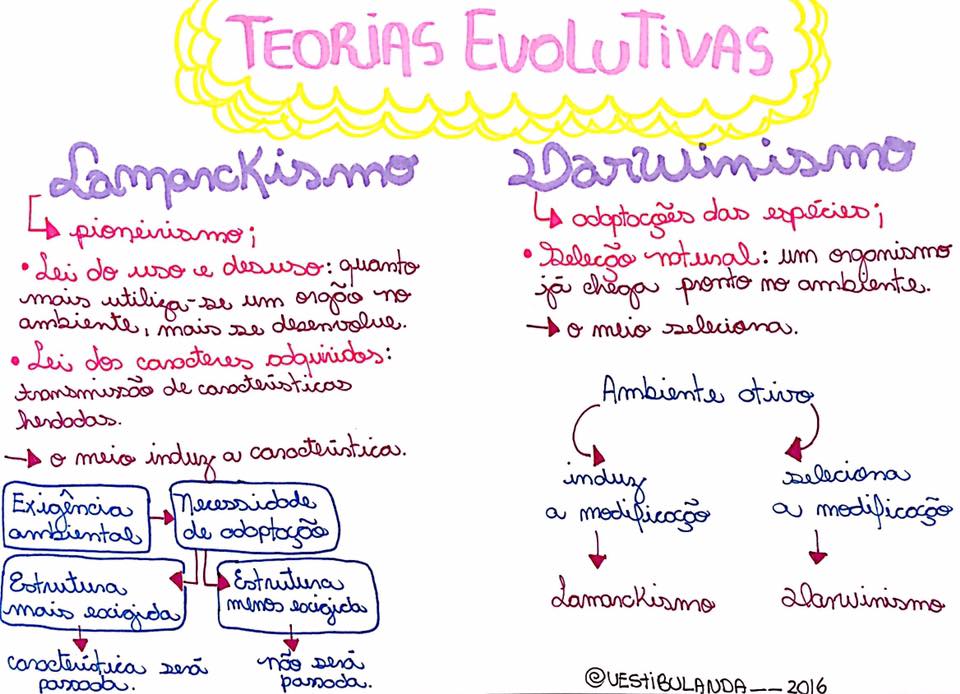 TEORIAS EVOLUTIVAS
Lamarckismo
pioneirismo;
• Lei do uso e desuso: quanto
mais utiliza-se um orgão no
ambiente, mais se desenvolve.
• Lei dos caracteres adquiridos:
transmissão de características
herdadas.
→ o meio induz a característica.
Exigência
ambiental
Necessidade
de adaptação
Estrutura
mais exigida
Estrutura
menos exigida
característica será
passada.
não será
passada.
Darwinismo
adaptações das espécies;
• Seleção natural: um organismo
já chega pronto no ambiente.
→ o meio seleciona.
Ambiente ativo
induz
a modificação
Lamarckismo
seleciona
a modificação
Darwinismo
@VESTIBULANDA__2016